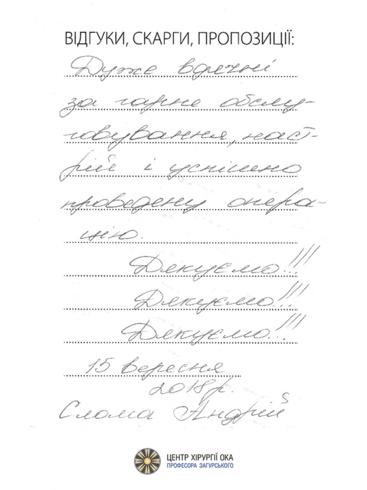 ВІДГУКИ, СКАРГИ, ПРОПОЗИЦІЇ:
Дуже вдячні
за гарне обслу-
говування, наст-
рій і успішно
проведену опера-
цію.
Дякуємо!!!
Дякуємо!!!
Дякуємо!!!
15 вересня
2018р.
Слома Андрій
ЦЕНТР ХІРУРГІЇ ОКА
ПРОФЕСОРА ЗАГУРСЬКОГО